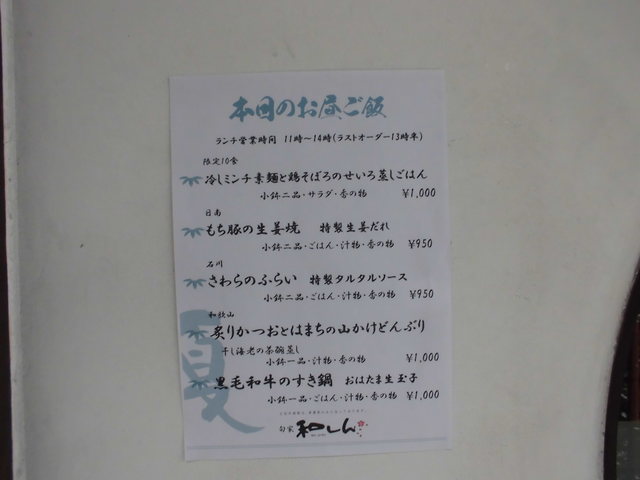 本日のお昼ご飯
ランチ営業時間 11時～14時(ラストオーダー13時半)
限定10食
冷しミンチ素麺と鶏そぼろのせいろ蒸しごはん
小鉢二品・サラダ・香の物 ¥1,000
日南
もち豚の生姜焼 特製生姜だれ
小鉢二品・ごはん・汁物・香の物 ¥950
石川
さわらのふらい 特製タルタルソース
小鉢二品・ごはん・汁物・香の物 ¥950
和歌山
炙りかつおとはまちの山かけどんぶり
干し海老の茶碗蒸し
小鉢一品・汁物・香の物 ¥1,000
黒毛和牛のすき鍋 おはたま生玉子
小鉢一品・ごはん・汁物・香の物 ¥1,000
夏
旬家 和しん